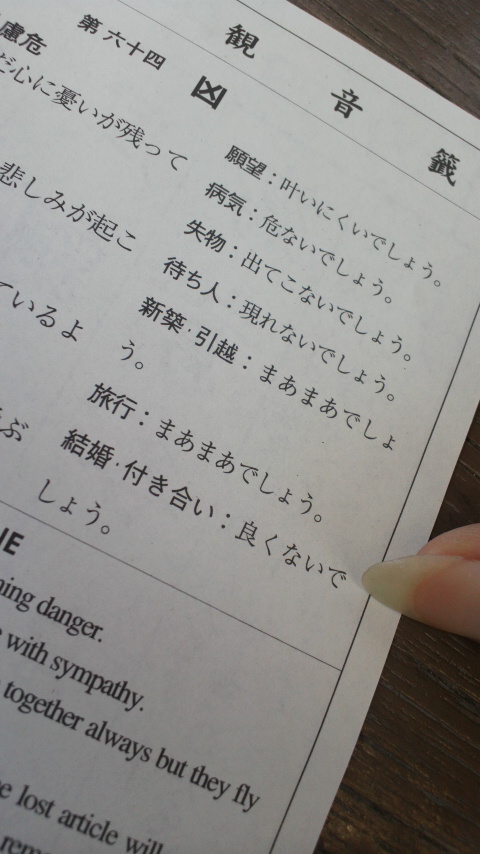 観 音 籤
第六十四 凶
慮危
心に憂いが残って
悲しみが起こ
いるよ
ぶ
願望：叶いにくいでしょう。
病気：危ないでしょう。
失物：出てこないでしょう。
待ち人：現れないでしょう。
新築・引越：まあまあでしょ
う。
旅行：まあまあでしょう。
結婚・付き合い：良くないで
しょう。
NE
danger.
with sympathy.
together always but they fly
lost article will